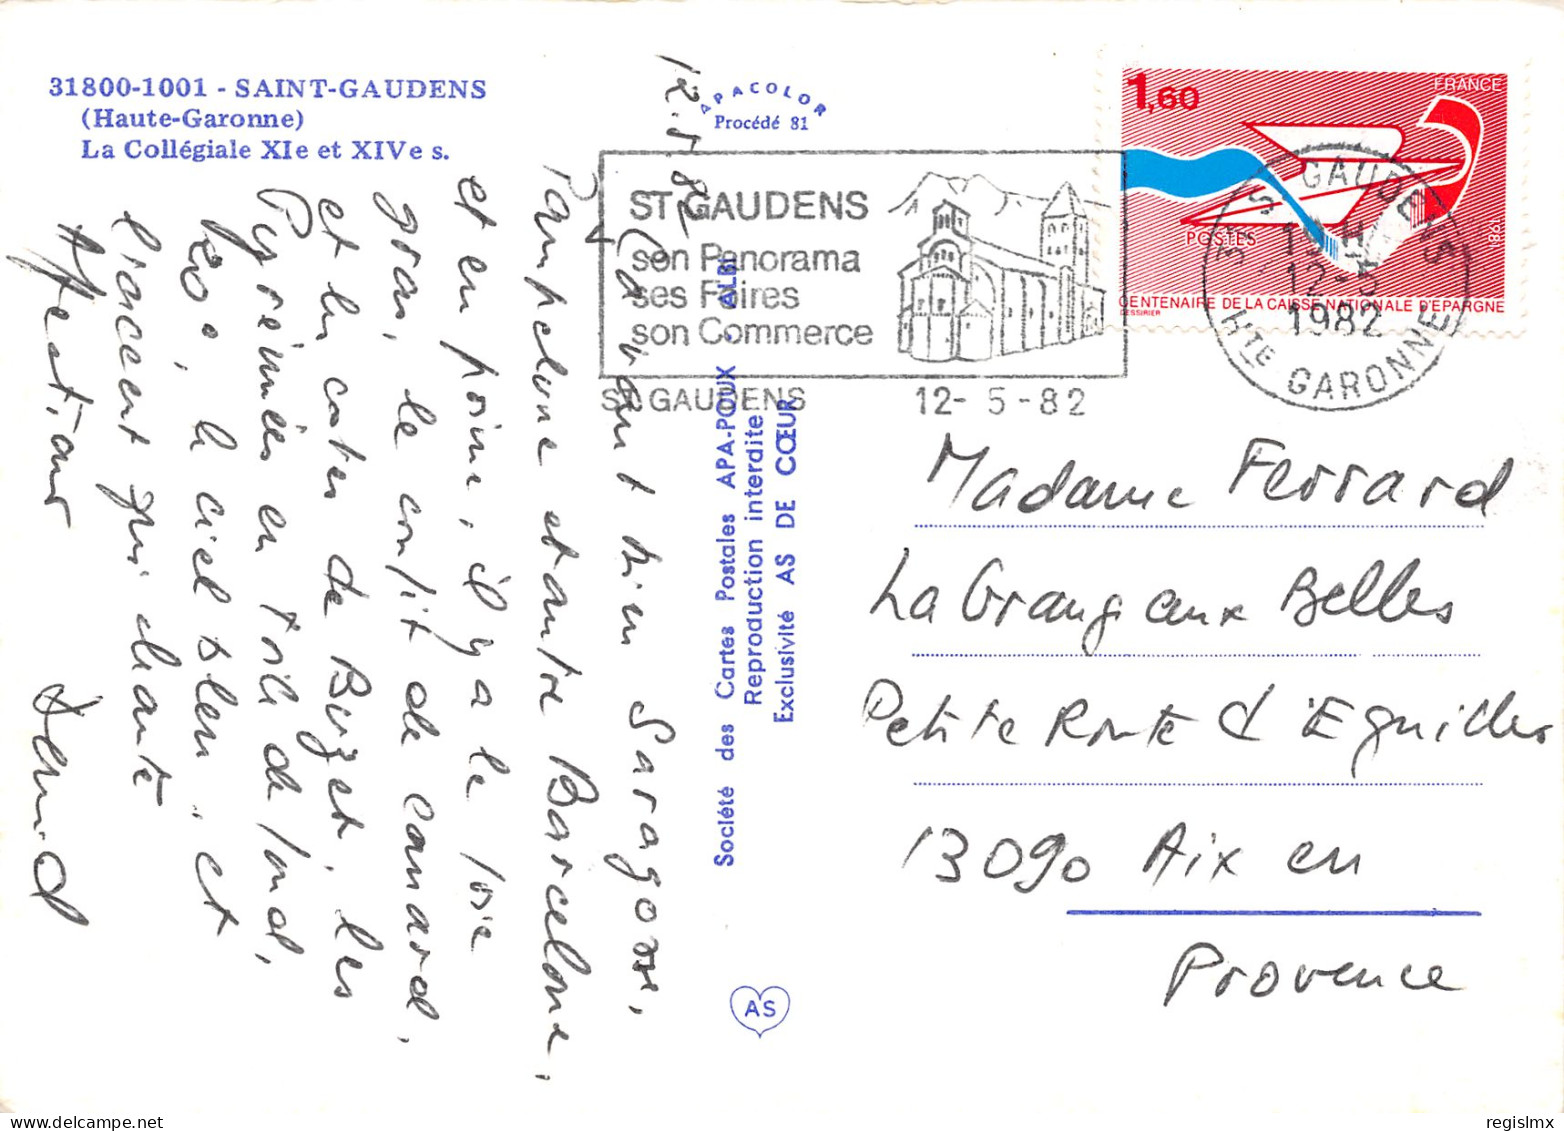 31800-1001 - SAINT-GAUDENS
(Haute-Garonne)
La Collégiale XIe et XIVe s.
APACOLOR
Procédé 81
12.5.82
Ça vaut bien Saragosse,
Pampelune et autre Barcelone,
et en prime, il y a le foie
gras, le confit de canard,
et les cotes de Buzet, les
Pyrénées en toile de fond,
le ciel bleu, et
l'accent qui chante
Affectueux
ST GAUDENS
son Panorama
ses Foires
son Commerce
ST GAUDENS
12- 5 -82
1,60
FRANCE
POSTES
1981
CENTENAIRE DE LA CAISSE NATIONALE D'EPARGNE
DESSIRIER
ST GAUDENS
12-5
1982
HTE GARONNE
Société des Cartes Postales APA-POUX - ALBI
Reproduction interdite
Exclusivité AS DE CŒUR
AS
Madame Ferrard
La Grange aux Belles
Petite Route d'Eguilles
13090 Aix en
Provence
regislmx